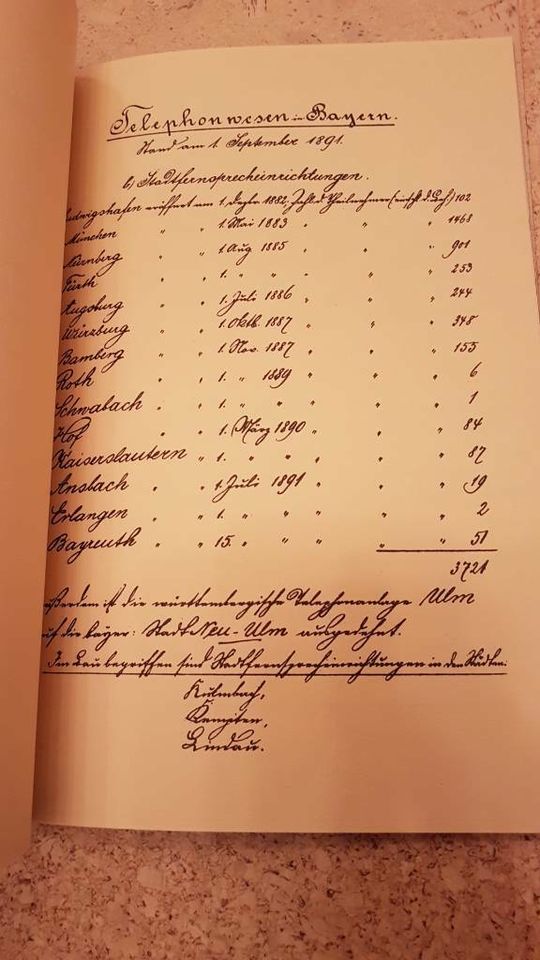 Telephonwesen in Bayern.
Stand am 1. September 1891.
b) Stadtfernsprecheinrichtungen.
Ludwigshafen eröffnet am 1. Dezbr 1882. Zahl d. Theilnehmer (einschl. d. ) 102
München " " 1. Mai 1883 " " " 1468
Nürnberg " " 1. Aug 1885 " " " 901
Fürth " " 1. " " " " 253
Augsburg " " 1. Juli 1886 " " " 244
Würzburg " " 1. Oktb. 1887 " " " 348
Bamberg " " 1. Nov. 1887 " " " 155
Roth " " 1. " 1889 " " " 6
Schwabach " " 1. " " " " " 1
Hof " " 1. März 1890 " " " 84
Kaiserslautern " 1. " " " " " 87
Ansbach " " 1. Juli 1891 " " " 19
Erlangen " " 1. " " " " " 2
Bayreuth " " 15. " " " " " 51
3721
außerdem ist die württembergische Telephonanlage Ulm
auf die bayer: Stadt Neu-Ulm ausgedehnt.
Im Bau begriffen sind Stadtfernsprecheinrichtungen in den Städten:
Kulmbach,
Kempten,
Lindau.